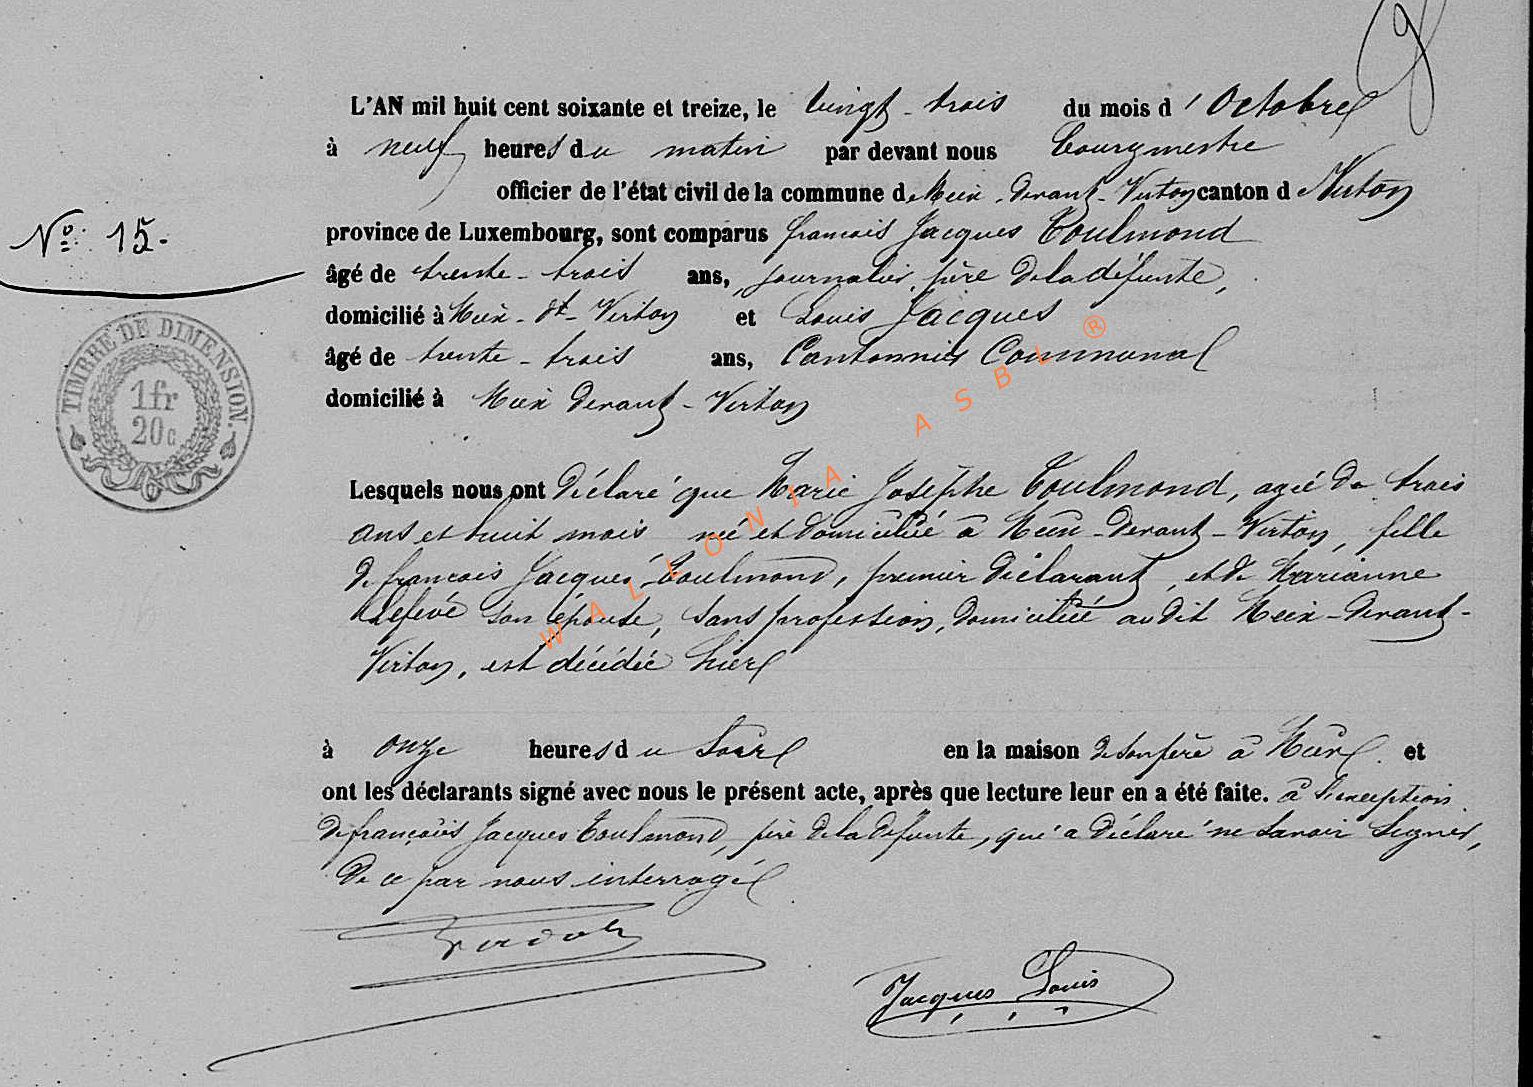 L'AN mil huit cent soixante et treize, le vingt-trois du mois d'Octobre
à neuf heures du matin par devant nous Bourgmestre
officier de l'état civil de la commune de Meix-devant-Virton canton de Virton
N° 15.
province de Luxembourg, sont comparus françois Jacques Toulmond
âgé de trente-trois ans, journalier, père de la défunte,
domicilié à Meix-dt-Virton et Louis Jacques
âgé de trente-trois ans, Cantonnier Communal
domicilié à Meix devant-Virton
TIMBRE DE DIMENSION.
1 fr
20 c
Lesquels nous ont déclaré que Marie Josephe Toulmond, agée de trois
ans et huit mois née et domiciliée à Meix-devant-Virton, fille
de françois Jacques Toulmond, premier déclarant, et de Marianne
Lefevé son épouse, sans profession, domiciliée au dit Meix-devant-
Virton, est décédée hier
à onze heures du soir en la maison de son père à Meix et
ont les déclarants signé avec nous le présent acte, après que lecture leur en a été faite. à l'exception
de françois Jacques Toulmond, père de la défunte, qui a déclaré ne savoir signer,
de ce par nous interrogé
Jacques Louis
WALLONIA ASBL ®